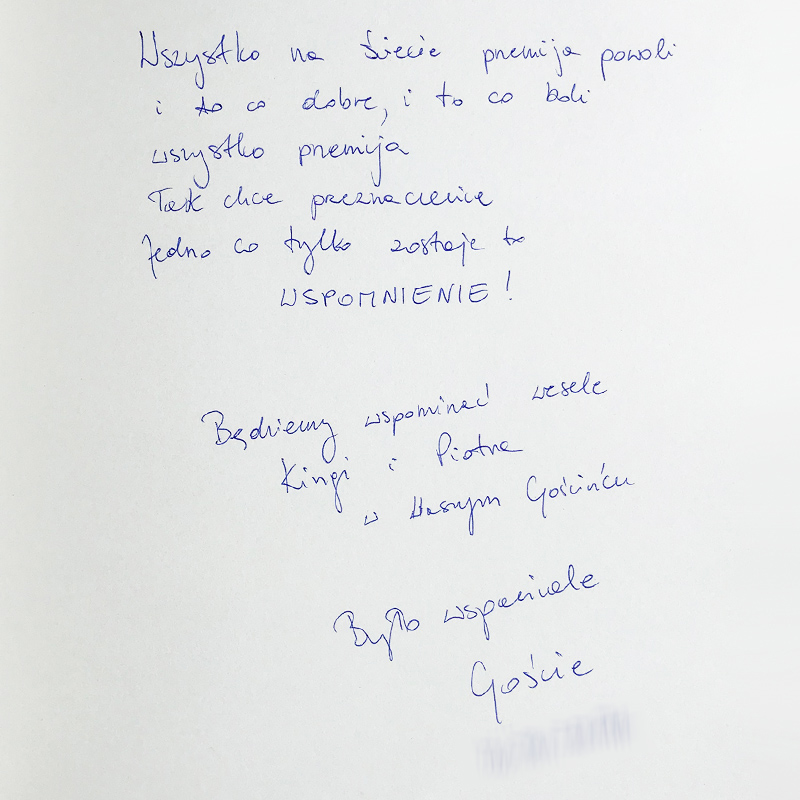 Wszystko na Świecie przemija powoli
i to co dobre, i to co boli
wszystko przemija
Tak chce przeznaczenie
Jedno co tylko zostaje to
WSPOMNIENIE!
Będziemy wspominać wesele
Kingi i Piotra
w Waszym Gościńcu
Było wspaniale
Goście